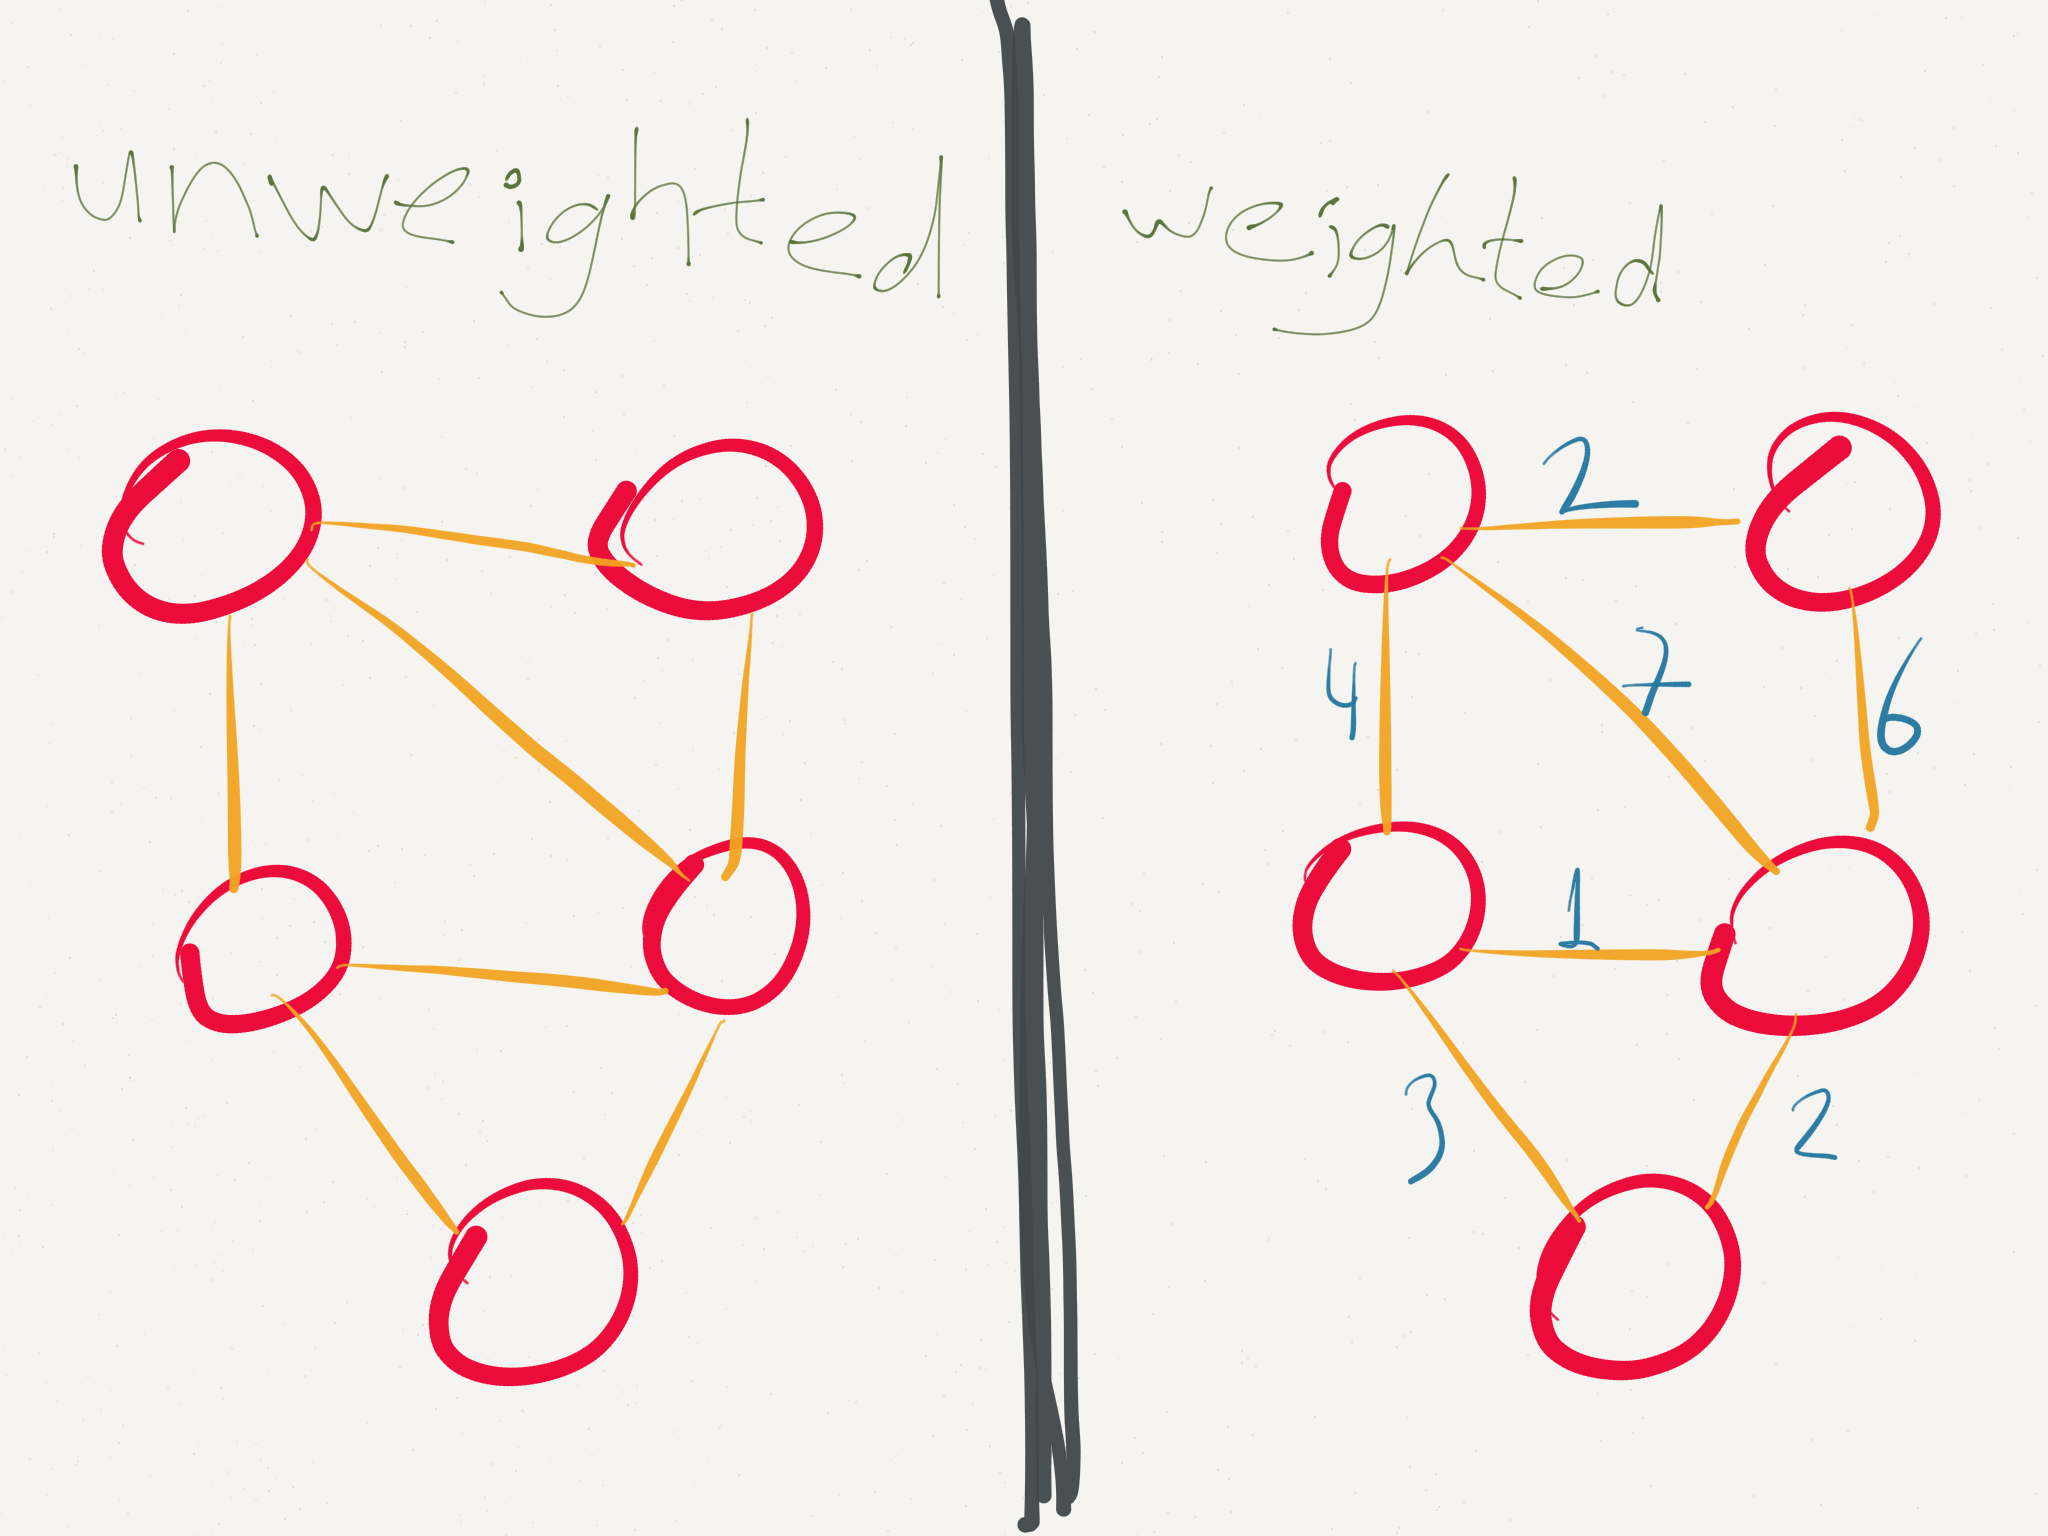 unweighted
weighted
2
4
7
6
1
3
2